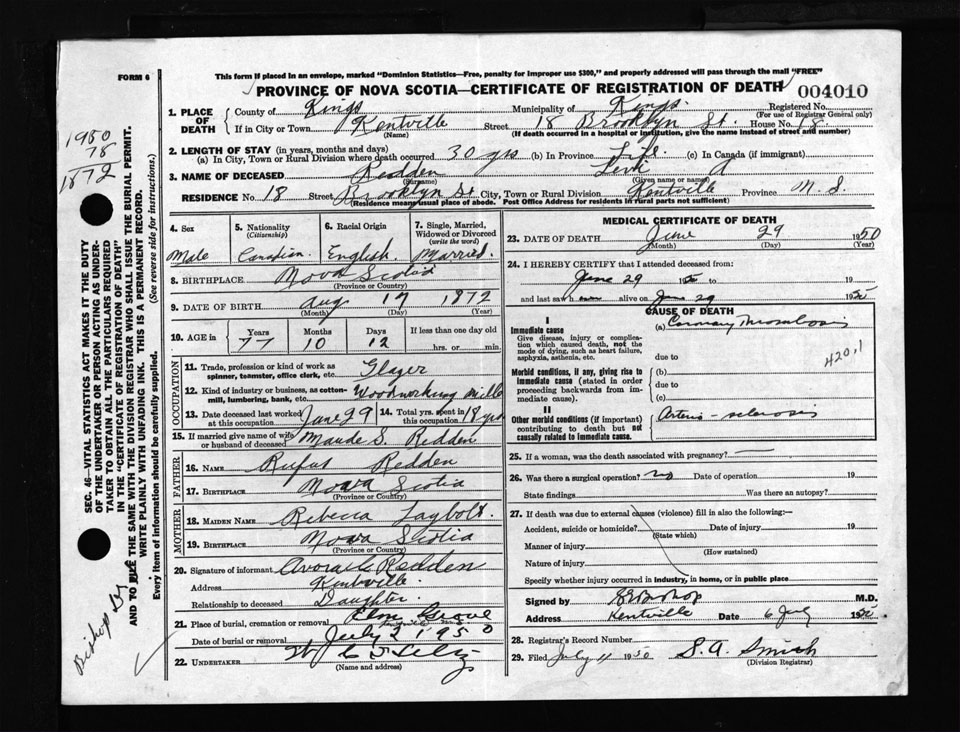 FORM 6
This form if placed in an envelope, marked "Dominion Statistics—Free, penalty for improper use $300," and properly addressed will pass through the mail "FREE"
PROVINCE OF NOVA SCOTIA—CERTIFICATE OF REGISTRATION OF DEATH
004010
1. PLACE OF DEATH
County of Kings Municipality of Kings Registered No.
(For use of Registrar General only)
If in City or Town Kentville Street 18 Brooklyn St. House No. 18.
(Name) (If death occurred in hospital or institution, give the name instead of street and number)
2. LENGTH OF STAY (in years, months and days)
(a) In City, Town or Rural Division where death occurred 30 yrs (b) In Province Life (c) In Canada (if immigrant)
3. NAME OF DECEASED Redden A
(Surname) (Given name or names)
RESIDENCE No. 18 Street Brooklyn St City, Town or Rural Division Kentville Province N. S.
(Residence means usual place of abode. Post Office Address for residents in rural parts not sufficient)
4. Sex
Male
5. Nationality
(Citizenship)
Canadian.
6. Racial Origin
English.
7. Single, Married, Widowed or Divorced
(write the word)
Married.
8. BIRTHPLACE Nova Scotia
(Province or Country)
9. DATE OF BIRTH Aug 17 1872
(Month) (Day) (Year)
10. AGE in
Years Months Days If less than one day old
77 10 12 hrs. or min.
OCCUPATION
11. Trade, profession or kind of work as spinner, teamster, office clerk, etc.
12. Kind of industry or business, as cotton-mill, lumbering, bank, etc. Woodworking Mills
13. Date deceased last worked at this occupation June 29
14. Total yrs. spent in this occupation 18 yrs
15. If married give name of wife or husband of deceased Maude S. Redden
FATHER
16. NAME Rufus Redden
17. BIRTHPLACE Nova Scotia
(Province or Country)
MOTHER
18. MAIDEN NAME Rebecca
19. BIRTHPLACE Nova Scotia
(Province or Country)
20. Signature of informant Redden
Address Kentville.
Relationship to deceased Daughter.
21. Place of burial, cremation or removal Elm Grove
Date of burial or removal July 2 1950
22. UNDERTAKER
(Name and address)
MEDICAL CERTIFICATE OF DEATH
23. DATE OF DEATH June 29 1950
(Month) (Day) (Year)
24. I HEREBY CERTIFY that I attended deceased from:
June 29 1950 to 19
and last saw h alive on June 29 1950
CAUSE OF DEATH
I
Immediate cause
Give disease, injury or complication which caused death, not the mode of dying, such as heart failure, asphyxia, asthenia, etc.
(a) Coronary Thrombosis
due to
420.1
Morbid conditions, if any, giving rise to immediate cause (stated in order proceeding backwards from immediate cause).
(b)
due to
(c)
II
Other morbid conditions (if important) contributing to death but not causally related to immediate cause.
Arterio-sclerosis
25. If a woman, was the death associated with pregnancy?
26. Was there a surgical operation? no Date of operation 19
State findings Was there an autopsy?
27. If death was due to external causes (violence) fill in also the following:—
Accident, suicide or homicide? Date of injury 19
(State which)
Manner of injury
(How sustained)
Nature of injury
Specify whether injury occurred in industry, in home, or in public place
Signed by Bishop M.D.
Address Kentville Date 6 July 1950
28. Registrar's Record Number
29. Filed July 11 1950 S. A. Smith
(Division Registrar)
1950
78
1872
SEC. 46—VITAL STATISTICS ACT MAKES IT THE DUTY
OF THE UNDERTAKER OR PERSON ACTING AS UNDER-
TAKER TO OBTAIN ALL THE PARTICULARS REQUIRED
IN THE "CERTIFICATE OF REGISTRATION OF DEATH"
AND TO FILE THE SAME WITH THE DIVISION REGISTRAR WHO SHALL ISSUE THE BURIAL PERMIT.
WRITE PLAINLY WITH UNFADING INK. THIS IS A PERMANENT RECORD.
Every item of information should be carefully supplied. (See reverse side for instructions.)
Bishop